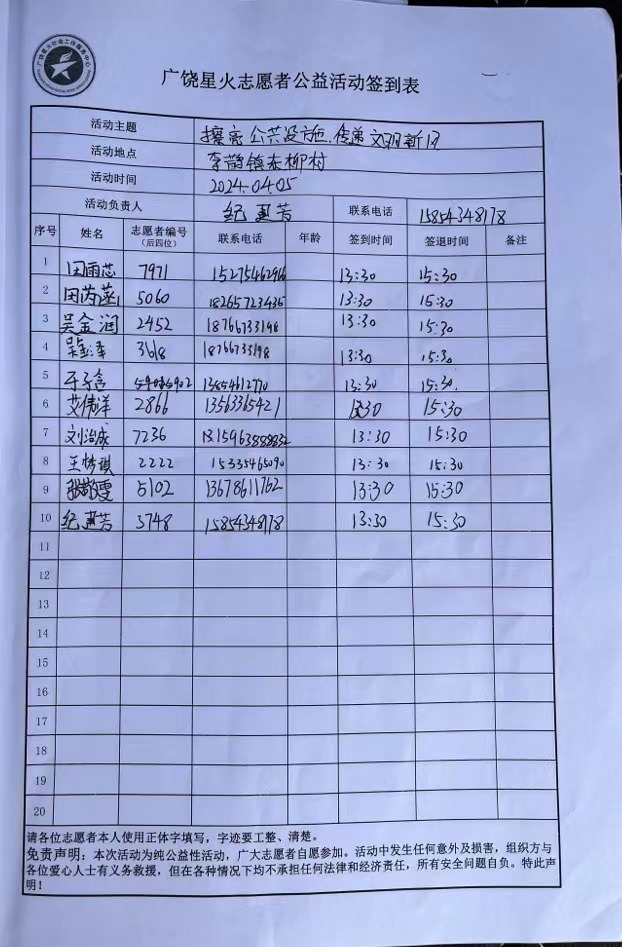 广饶星火社会工作服务中心
广饶星火志愿者公益活动签到表
活动主题 擦亮公共设施、传递文明新风
活动地点 李鹊镇东柳村
活动时间 2024.04.05
活动负责人 纪惠芳 联系电话 15854348178
序号 姓名 志愿者编号（后四位） 联系电话 年龄 签到时间 签退时间 备注
1 田雨芯 7971 15275462966 13:30 15:30
2 田芮菡 5060 18265723436 13:30 15:30
3 吴金润 2452 18766733198 13:30 15:30
4 吴金泽 3618 18766733198 13:30 15:30
5 于子 13854612770 13:30 15:30.
6 艾伟洋 2866 13563365421 13:30 15:30
7 刘治成 7236 13:30 15:30
8 王梦琪 2222 15335465090 13:30 15:30
9 雯 5102 13678611762 13:30 15:30
10 纪惠芳 3748 15854348178 13:30 15:30
11
12
13
14
15
16
17
18
19
20
请各位志愿者本人使用正体字填写，字迹要工整、清楚。
免责声明：本次活动为纯公益性活动，广大志愿者自愿参加。活动中发生任何意外及损害，组织方与
各位爱心人士有义务救援，但在各种情况下均不承担任何法律和经济责任，所有安全问题自负。特此声
明！